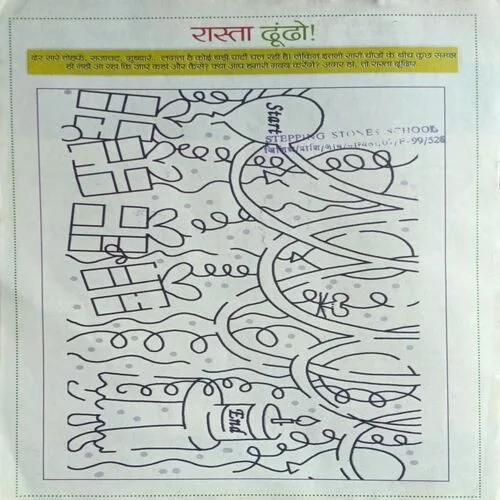 रास्ता ढूंढो!
ढेर सारे तोहफे, सजावट, गुब्बारे... लगता है कोई बड़ी पार्टी चल रही है। लेकिन इतनी सारी चीजों के बीच कुछ समझ
ही नहीं आ रहा कि जाएं कहां और कैसे? क्या आप हमारी मदद करेंगे? अगर हां, तो रास्ता ढूंढिए
Start
STEPPING STONES SCHOOL
End